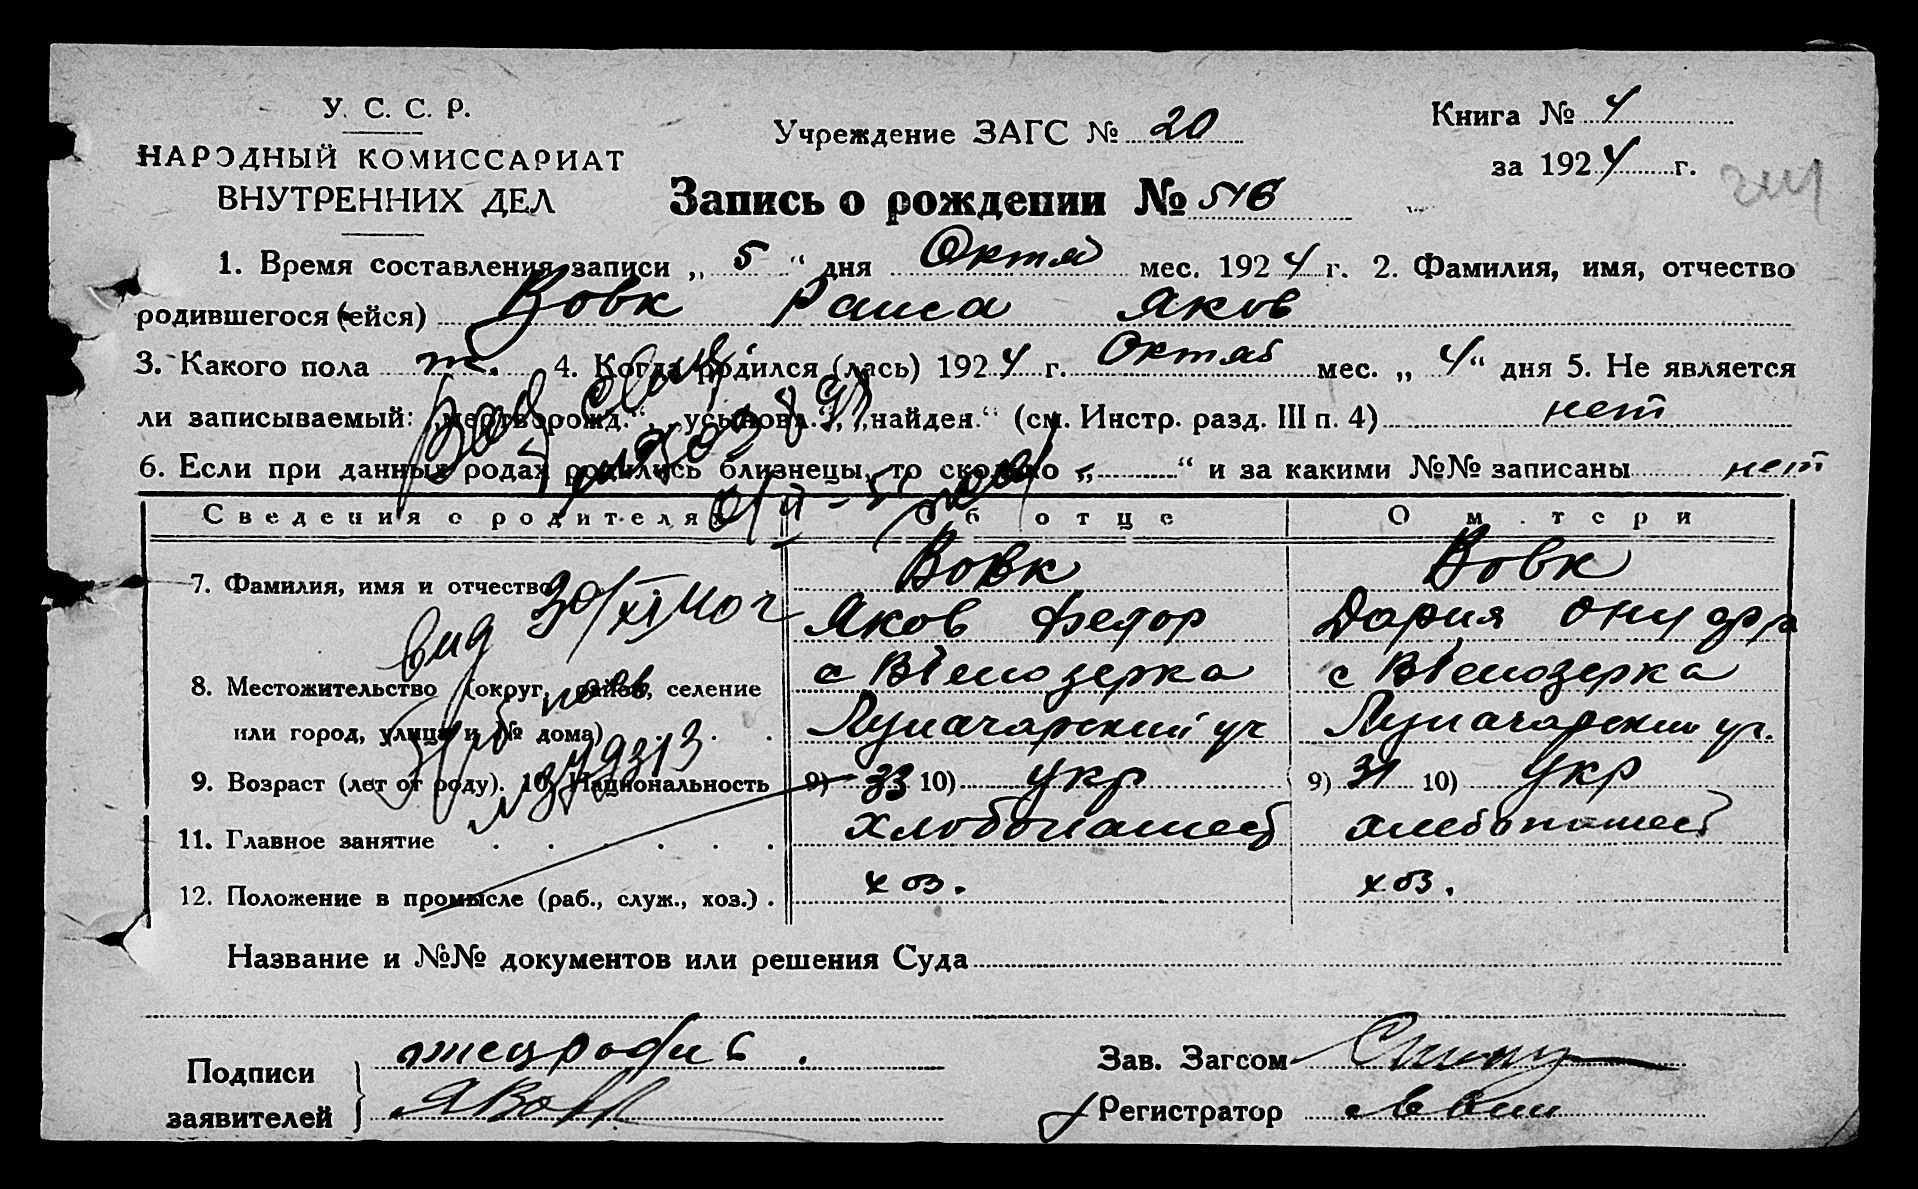 У. С. С. Р.
НАРОДНЫЙ КОМИССАРИАТ
ВНУТРЕННИХ ДЕЛ
Учреждение ЗАГС № 20
Книга № 4
за 1924 г.
Запись о рождении № 516
1. Время составления записи „ 5 “ дня Октя мес. 1924 г. 2. Фамилия, имя, отчество
родившегося (ейся) Вовк Раиса Яков
3. Какого пола 4. Когда родился (лась) 1924 г. Октяб мес. „ 4 “ дня 5. Не является
ли записываемый: „мертворожд.“, „усынова.“, „найден.“ (см. Инстр. разд. III п. 4) нет
6. Если при данных родах родились близнецы, то сколько „ “ и за какими №№ записаны нет
Сведения о родителях Об отце О матери
7. Фамилия, имя и отчество Вовк Вовк
Яков Федор Дария
8. Местожительство (округ, район, селение с Белозерка с Белозерка
или город, улица и № дома) Луначарский Луначарский
9. Возраст (лет от роду). 10. Национальность 9) 33 10) укр 9) 31 10) укр
11. Главное занятие хлебопашец хлебопашец
12. Положение в промысле (раб., служ., хоз.) . хоз. хоз.
вид 30/XI 40 г
379313
Название и №№ документов или решения Суда
Подписи
заявителей
ЯВовк
Зав. Загсом
Регистратор